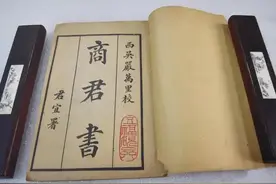 西吳嚴萬里校
商君書
君宜署